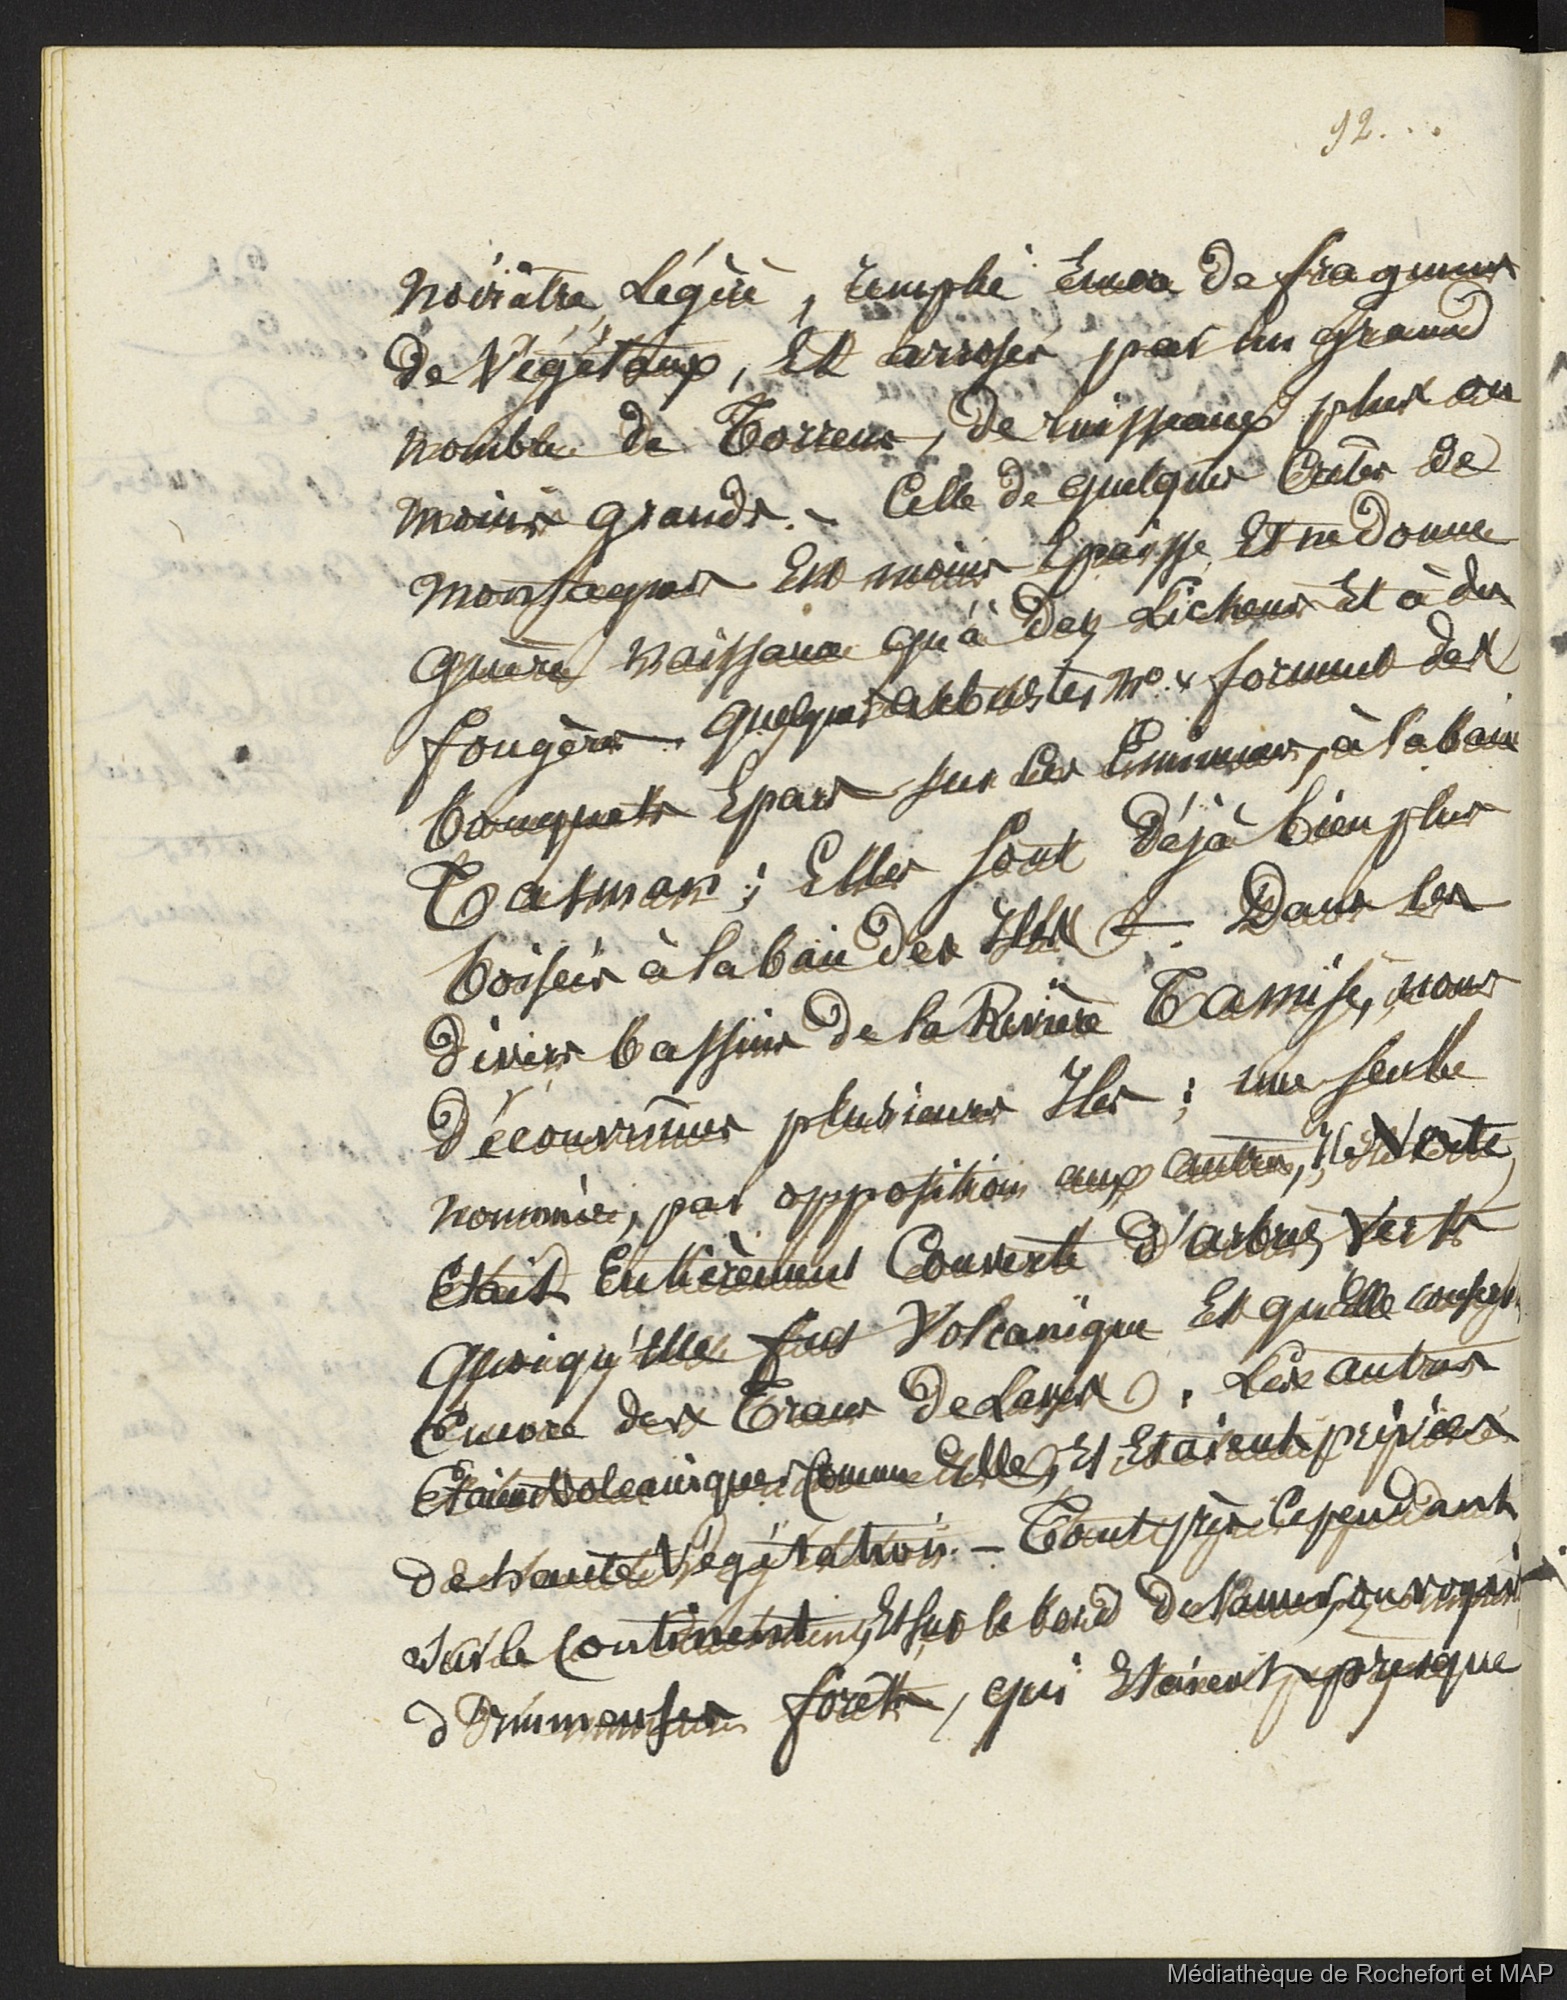 92...
noirâtre, Légère, rempli Encore de fragmens
de Végétaux, Et arrosés par un grand
nombre de Torrens, de ruisseaux plus ou
moins grands. - Celle de quelques Crêtes de
montagnes Est moins Epaisse, Et ne donne
guère naissance qu'à des Lichens Et à des
fougères. quelques arbustes forment des
bouquets Epars sur les Eminences, à la baie
Tasman; Elles sont déjà bien plus
boisées à la baie des Iles. Dans les
divers bassins de la Rivière Tamise, nous
découvrimes plusieurs Iles; une seule
nommée, par opposition aux autres, Ile Verte,
Etait Entièrement Couverte d'arbres Verts
quoiqu'Elle fut Volcanique Et qu'Elle
Encore des Traces de Laves. Les autres
Etaient Volcaniques Comme Elle, Et Etaient privées
de haute Végétation. - Tout près Cependant
sur le Continent, Et sur le bord de la mer, on voyait
d'immenses forêts, qui Etaient presque
Médiathèque de Rochefort et MAP